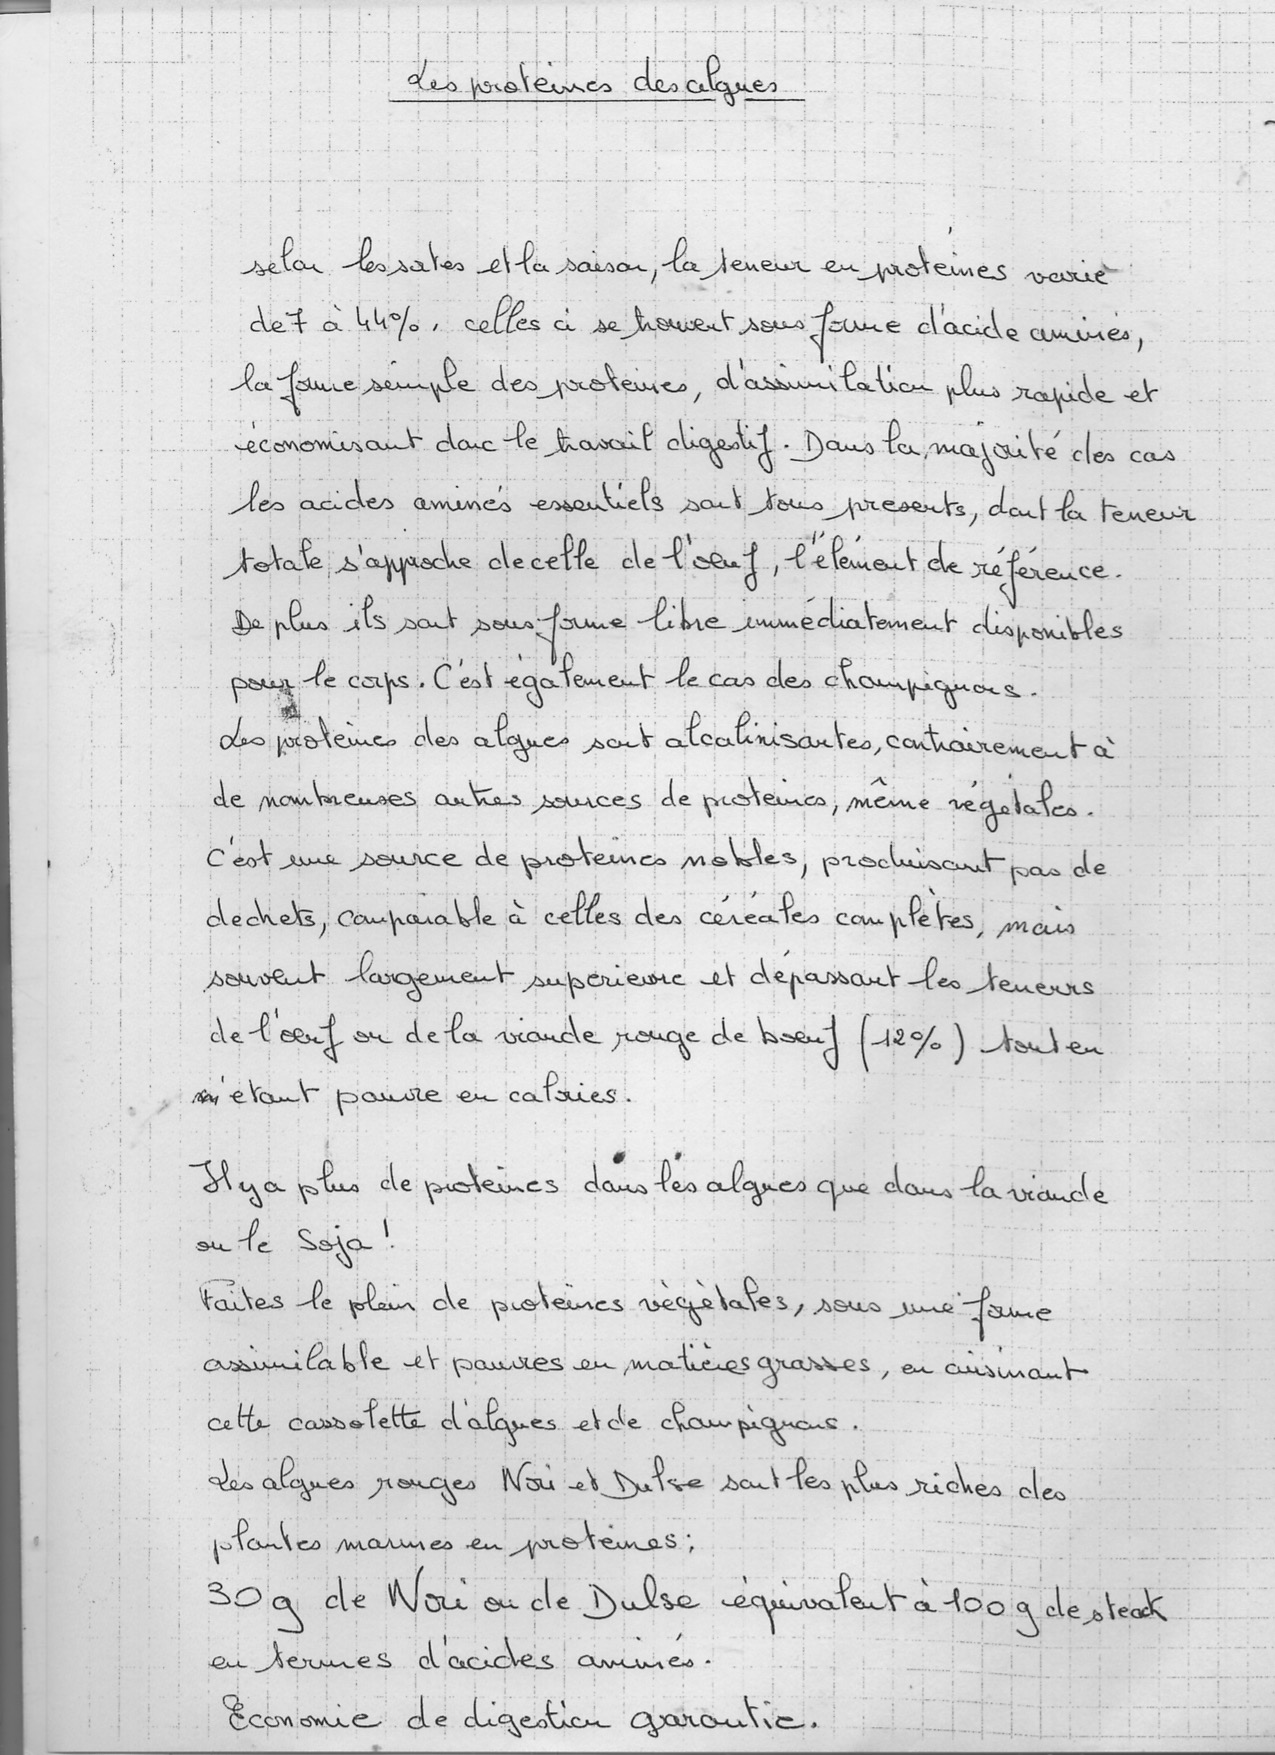 Les proteines des algues
selon les sortes et la saison, la teneur en protéines varie
de 7 à 44%. celles ci se trouvent sous forme d'acide aminés,
la forme simple des proteines, d'assimilation plus rapide et
économisant donc le travail digestif. Dans la majorité des cas
les acides aminés essentiels sont tous presents, dont la teneur
totale s'approche de celle de l'œuf, l'élément de référence.
De plus ils sont sous forme libre immédiatement disponibles
pour le corps. C'est également le cas des champignons.
Les proteines des algues sont alcalinisantes, contrairement à
de nombreuses autres sources de proteines, même végétales.
C'est une source de proteines nobles, produisant pas de
dechets, comparable à celles des céréales complètes, mais
souvent largement superieure et dépassant les teneurs
de l'œuf ou de la viande rouge de bœuf (12%) tout en
étant pauvre en calories.
Il y a plus de proteines dans les algues que dans la viande
ou le Soja !
Faites le plein de proteines végètales, sous une forme
assimilable et pauvres en matières grasses, en cuisinant
cette cassolette d'algues et de champignons.
Les algues rouges Nori et Dulse sont les plus riches des
plantes marines en proteines ;
30g de Nori ou de Dulse équivalent à 100g de steack
en termes d'acides aminés.
Economie de digestion garantie.